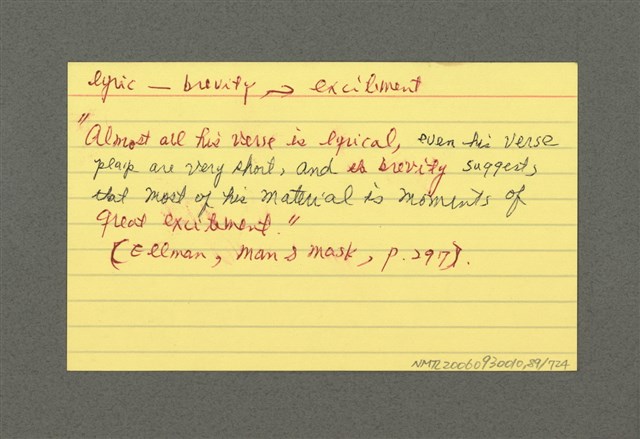 lyric — brevity → excitement
"Almost all his verse is lyrical, even his verse
plays are very short, and its brevity suggests
that most of his material is moments of
great excitement."
(Ellman, Man & Mask, p. 297).
NMTL20060930010,89/724